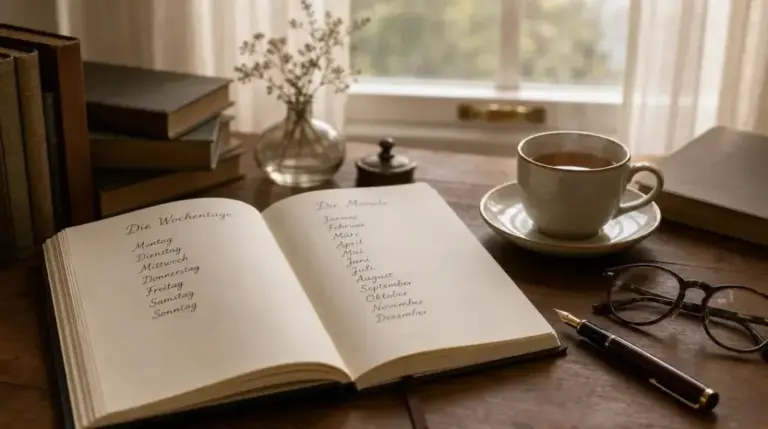 Die Wochentage
Montag
Dienstag
Mittwoch
Donnerstag
Freitag
Samstag
Sonntag
Die Monate
Januar
Februar
März
April
Mai
Juni
Juli
August
September
Oktober
November
Dezember